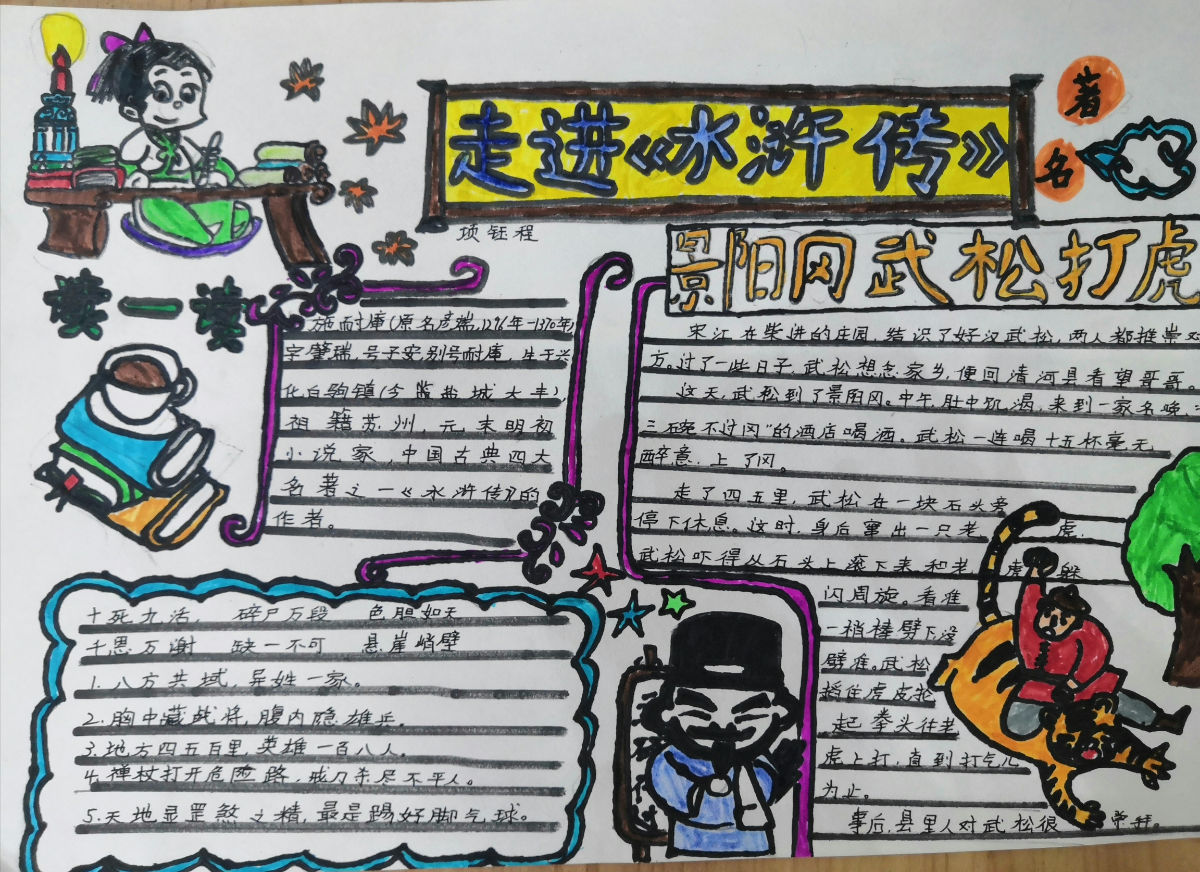 走进《水浒传》
著
名
项钰程
读一读
施耐庵(原名彦端,1296年-1370年)
字肇瑞,号子安,别号耐庵,生于兴
化白驹镇(今盐城大丰),
祖籍苏州,元末明初
小说家,中国古典四大
名著之一《水浒传》的
作者。
景阳冈武松打虎
宋江在柴进的庄园,结识了好汉武松,两人都推崇对
方。过了一些日子,武松想念家乡,便回清河县看望哥哥。
这天,武松到了景阳冈。中午肚中饥渴,来到一家名唤
三碗不过冈"的酒店喝酒。武松一连喝十五杯毫无
醉意,上了冈。
走了四五里,武松在一块石头旁
停下休息。这时,身后窜出一只老虎.
武松吓得从石头上滚下来和老虎躲
闪周旋。看准
一梢棒劈下没
劈准。武松
揪住虎皮抡
起拳头往老
虎上打,直到打气儿
为止。
事后,县里人对武松很崇拜。
十死九活, 碎尸万段 色胆如天
千恩万谢 缺一不可 悬崖峭壁
1.八方共域,异姓一家。
2.胸中藏战将,腹内隐雄兵。
3.地方四五百里,英雄一百八人。
4.禅杖打开危险路,戒刀杀尽不平人。
5.天地显罡煞之精,最是踢好脚气球。